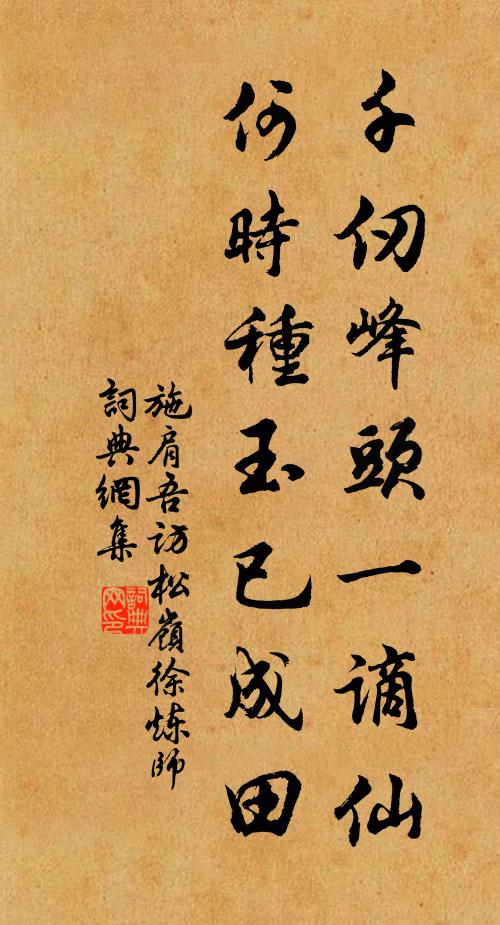 千仞峰頭一謫仙
何時種玉已成田
施肩吾訪松嶺徐炼師
詞典網集
詞典
网印